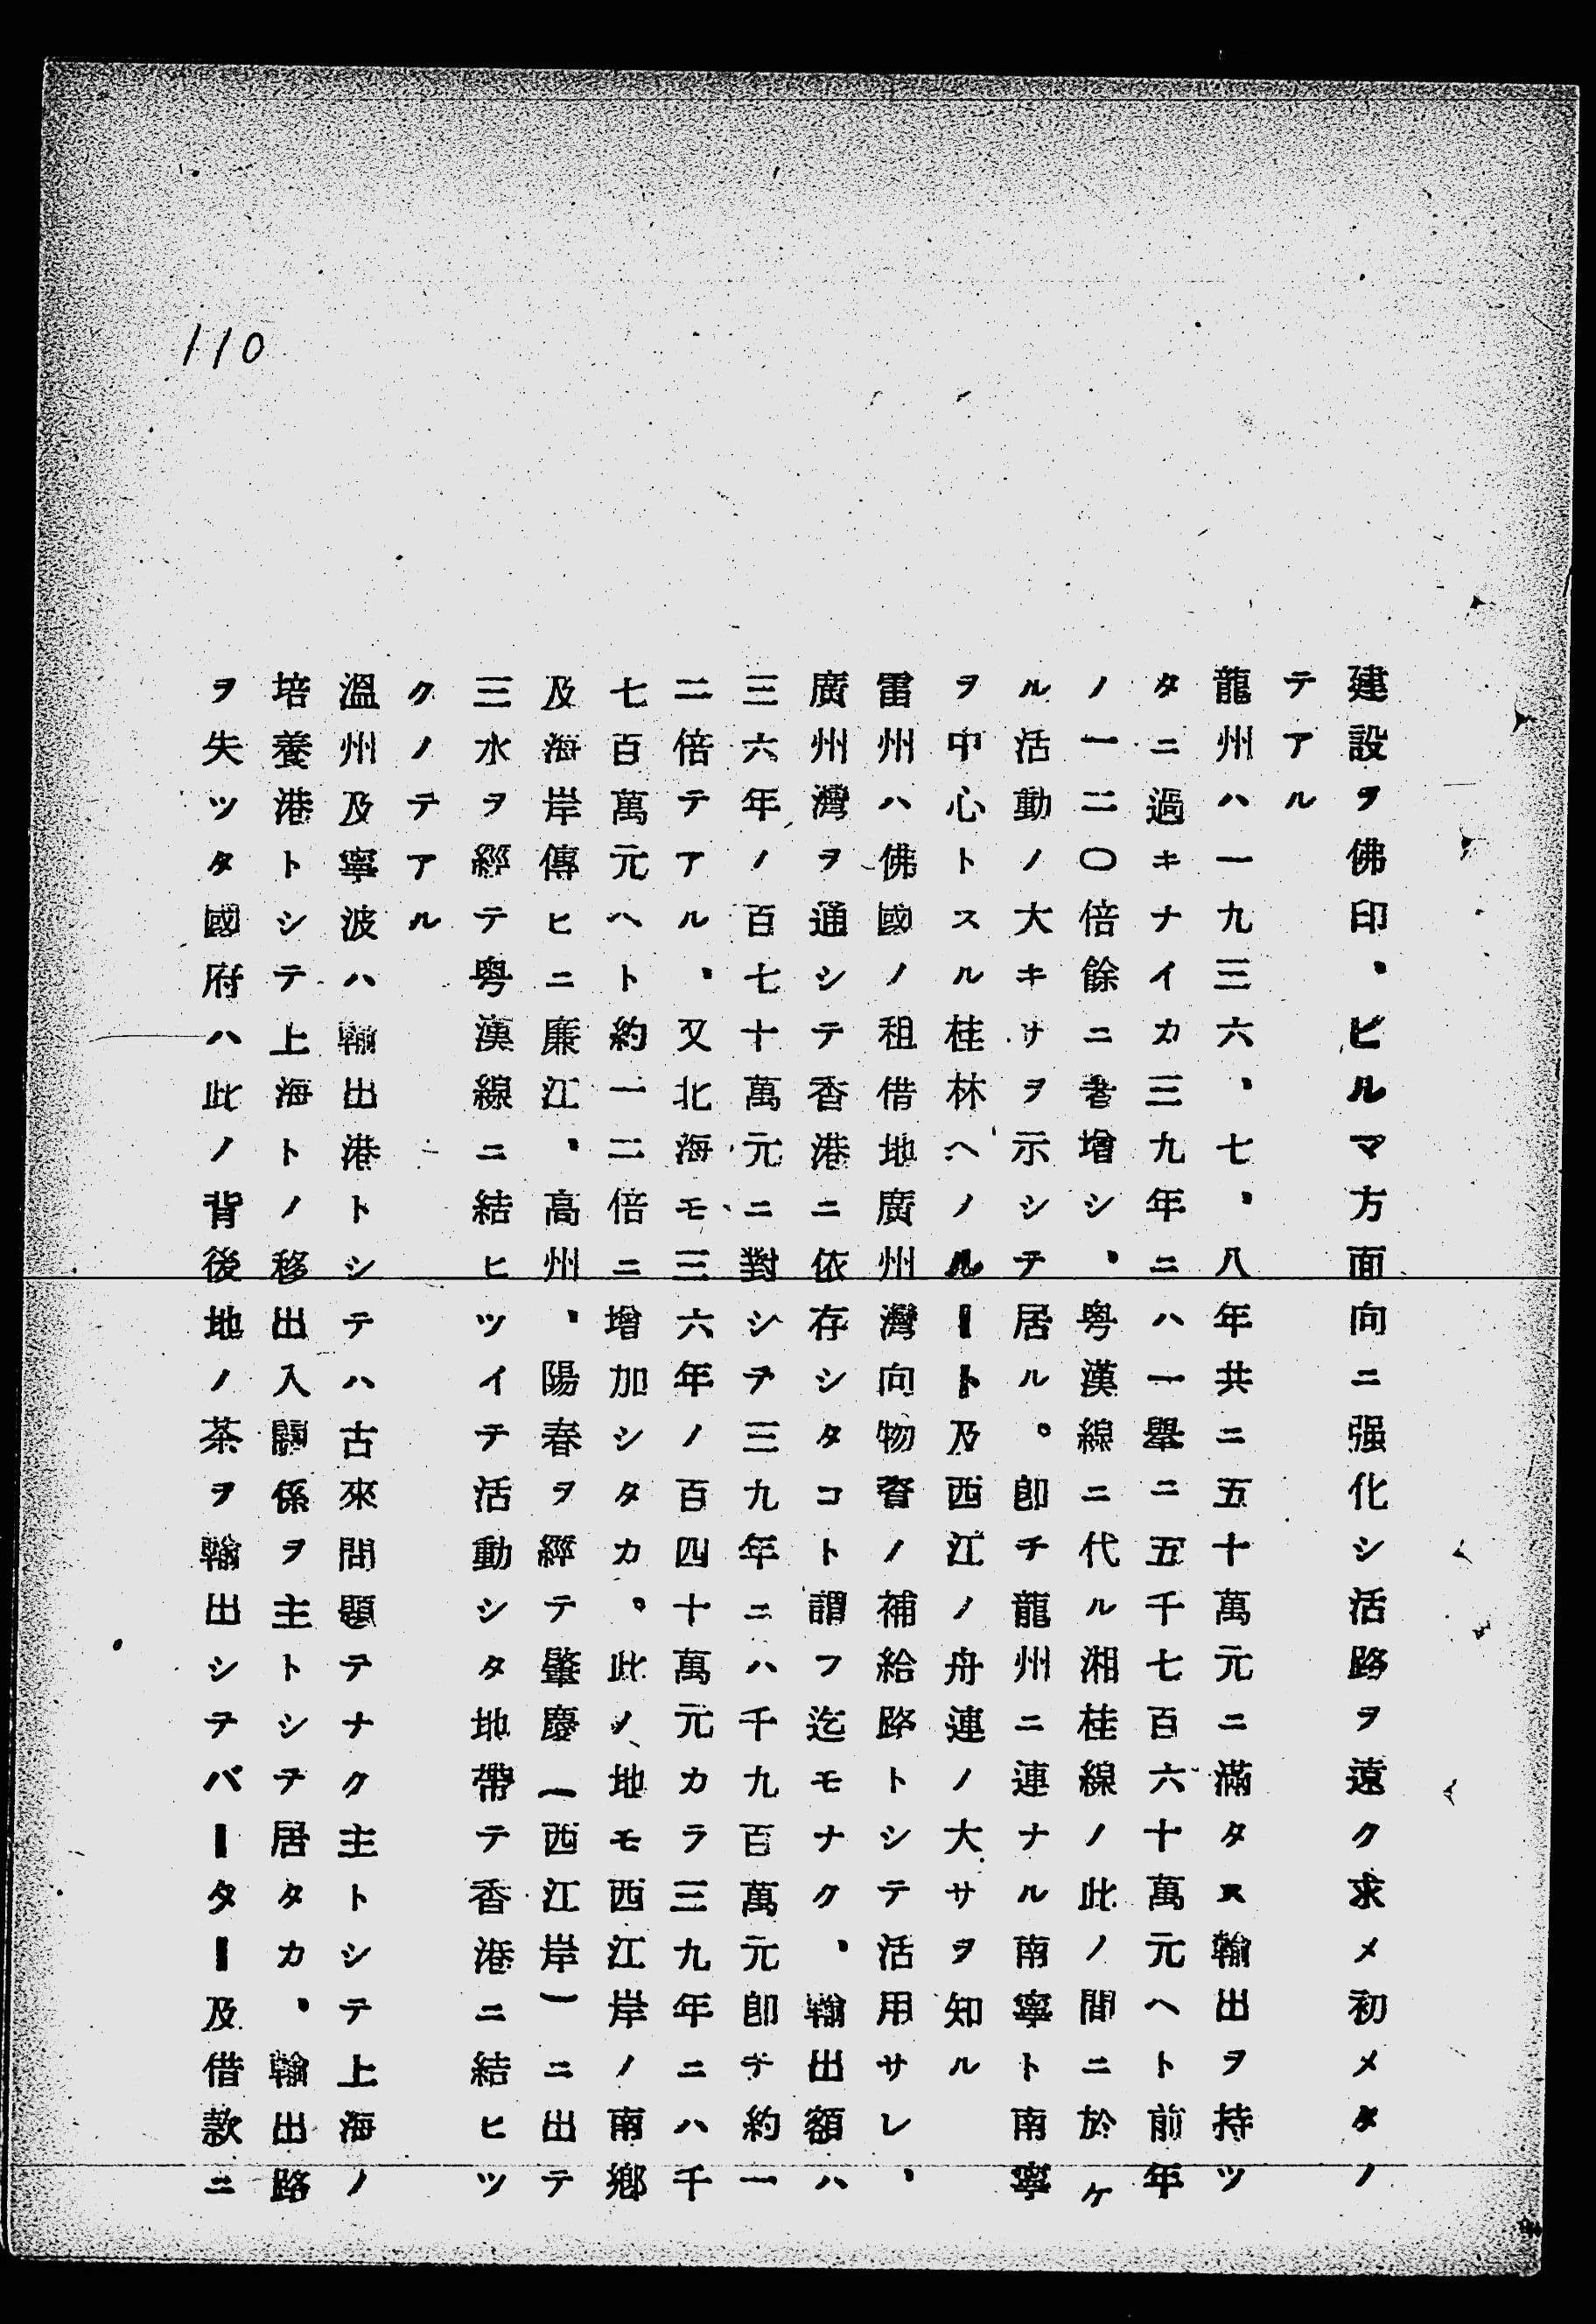 110
建設ヲ佛印、ビルマ方面向ニ强化シ活路ヲ遠ク求メ初メタノ
テアル
龍州ハ一九三六、七、八年共ニ五十萬元ニ滿タヌ輸出ヲ持ツ
タニ過キナイカ三九年ニハ一擧ニ五千七百六十萬元ヘト前年
ノ一二〇倍餘ニ著增シ、粤漢線ニ代ル湘桂線ノ此ノ間ニ於ケ
ル活動ノ大キサヲ示シテ居ル。卽チ龍州ニ連ナル南寧ト南寧
ヲ中心トスル桂林ヘノルート及西江ノ舟運ノ大サヲ知ル
雷州ハ佛國ノ租借地廣州灣向物資ノ補給路トシテ活用サレ、
廣州灣ヲ通シテ香港ニ依存シタコト謂フ迄モナク、輸出額ハ
三六年ノ百七十萬元ニ對シテ三九年ニハ千九百萬元卽チ約一
二倍テアル、又北海モ三六年ノ百四十萬元カラ三九年ニハ千
七百萬元ヘト約一二倍ニ增加シタカ。此ノ地モ西江岸ノ南鄕
及海岸傳ヒニ廉江、高州、陽春ヲ經テ肇慶(西江岸)ニ出テ
三水ヲ經テ粤漢線ニ結ヒツイテ活動シタ地帶テ香港ニ結ヒツ
クノテアル
溫州及寧波ハ輸出港トシテハ古來問題テナク主トシテ上海ノ
培養港トシテ上海トノ移出入關係ヲ主トシテ居タカ、輸出路
ヲ失ツタ國府ハ此ノ背後地ノ茶ヲ輸出シテバーター及借款ニ